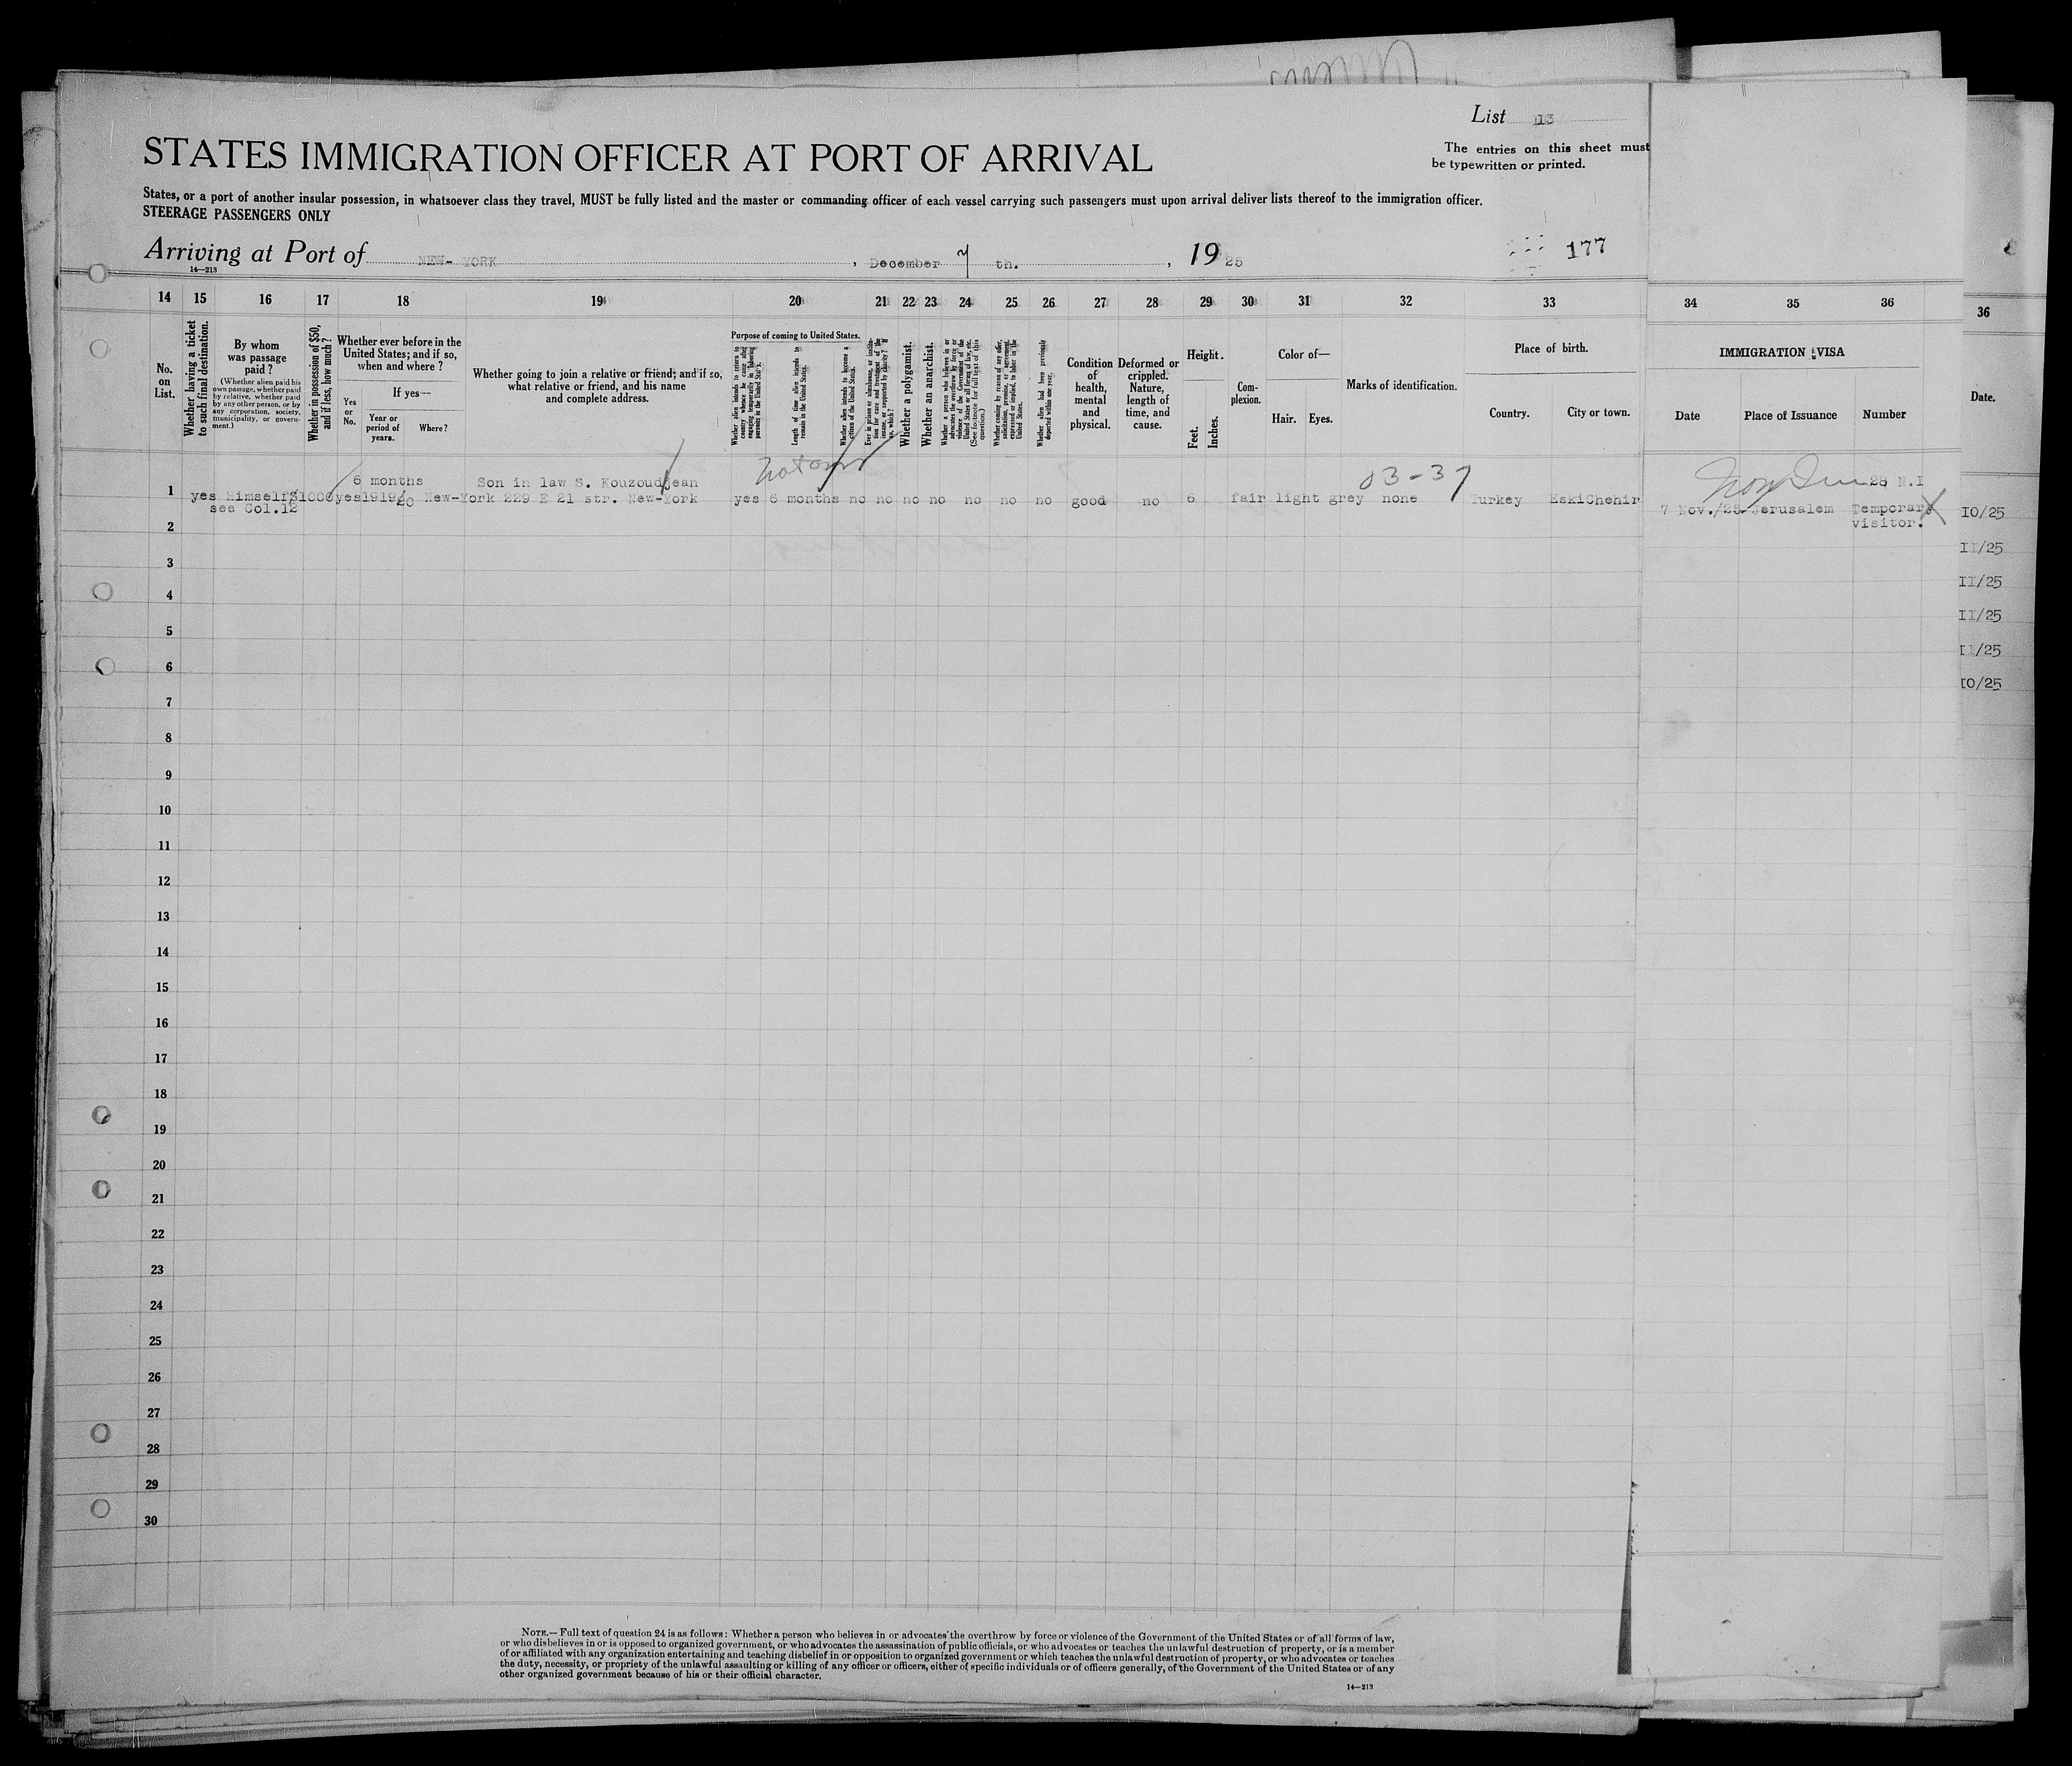 List 13
STATES IMMIGRATION OFFICER AT PORT OF ARRIVAL
The entries on this sheet must
be typewritten or printed.
States, or a port of another insular possession, in whatsoever class they travel, MUST be fully listed and the master or commanding officer of each vessel carrying such passengers must upon arrival deliver lists thereof to the immigration officer.
STEERAGE PASSENGERS ONLY
Arriving at Port of NEW-YORK, December 7 th., 1925
177
14—213
14 15 16 17 18 19 20 21 22 23 24 25 26 27 28 29 30 31 32 33 34 35 36
36
No. on List.
Whether having a ticket to such final destination.
By whom was passage paid?
(Whether alien paid his own passage, whether paid by relative, whether paid by any other person, or by any corporation, society, municipality, or government.)
Whether in possession of $50, and if less, how much?
Whether ever before in the United States; and if so, when and where?
If yes—
Yes or No.
Year or period of years.
Where?
Whether going to join a relative or friend; and if so, what relative or friend, and his name and complete address.
Purpose of coming to United States.
Whether alien intends to return to country whence he came after engaging temporarily in laboring pursuits in the United States.
Length of time alien intends to remain in the United States.
Whether alien intends to become a citizen of the United States.
Ever in prison or almshouse, or institution for care and treatment of the insane, or supported by charity? If so, which?
Whether a polygamist.
Whether an anarchist.
Whether a person who believes in or advocates the overthrow by force or violence of the Government of the United States or all forms of law, etc. (See footnote for full text of this question.)
Whether coming by reason of any offer, solicitation, promise, or agreement, expressed or implied, to labor in the United States.
Whether alien had been previously deported within one year.
Condition of health, mental and physical.
Deformed or crippled. Nature, length of time, and cause.
Height.
Feet. Inches.
Complexion.
Color of—
Hair. Eyes.
Marks of identification.
Place of birth.
Country. City or town.
IMMIGRATION VISA
Date Place of Issuance Number
Date.
03-37
6 months Son in law S. Kouzoudjean 26 N.I
1 yes himself $1000 yes 1919 New-York 229 E 21 str. New-York yes 6 months no no no no no no no good no 6 fair light grey none Turkey EskiChehir
see Col.12
7 Nov./25 Jerusalem Temporary
visitor.
10/25
11/25
11/25
11/25
11/25
10/25
2
3
4
5
6
7
8
9
10
11
12
13
14
15
16
17
18
19
20
21
22
23
24
25
26
27
28
29
30
NOTE.—Full text of question 24 is as follows: Whether a person who believes in or advocates the overthrow by force or violence of the Government of the United States or of all forms of law,
or who disbelieves in or is opposed to organized government, or who advocates the assassination of public officials, or who advocates or teaches the unlawful destruction of property, or is a member
of or affiliated with any organization entertaining and teaching disbelief in or opposition to organized government or which teaches the unlawful destruction of property, or who advocates or teaches
the duty, necessity, or propriety of the unlawful assaulting or killing of any officer or officers, either of specific individuals or of officers generally, of the Government of the United States or of any
other organized government because of his or their official character.
14—213